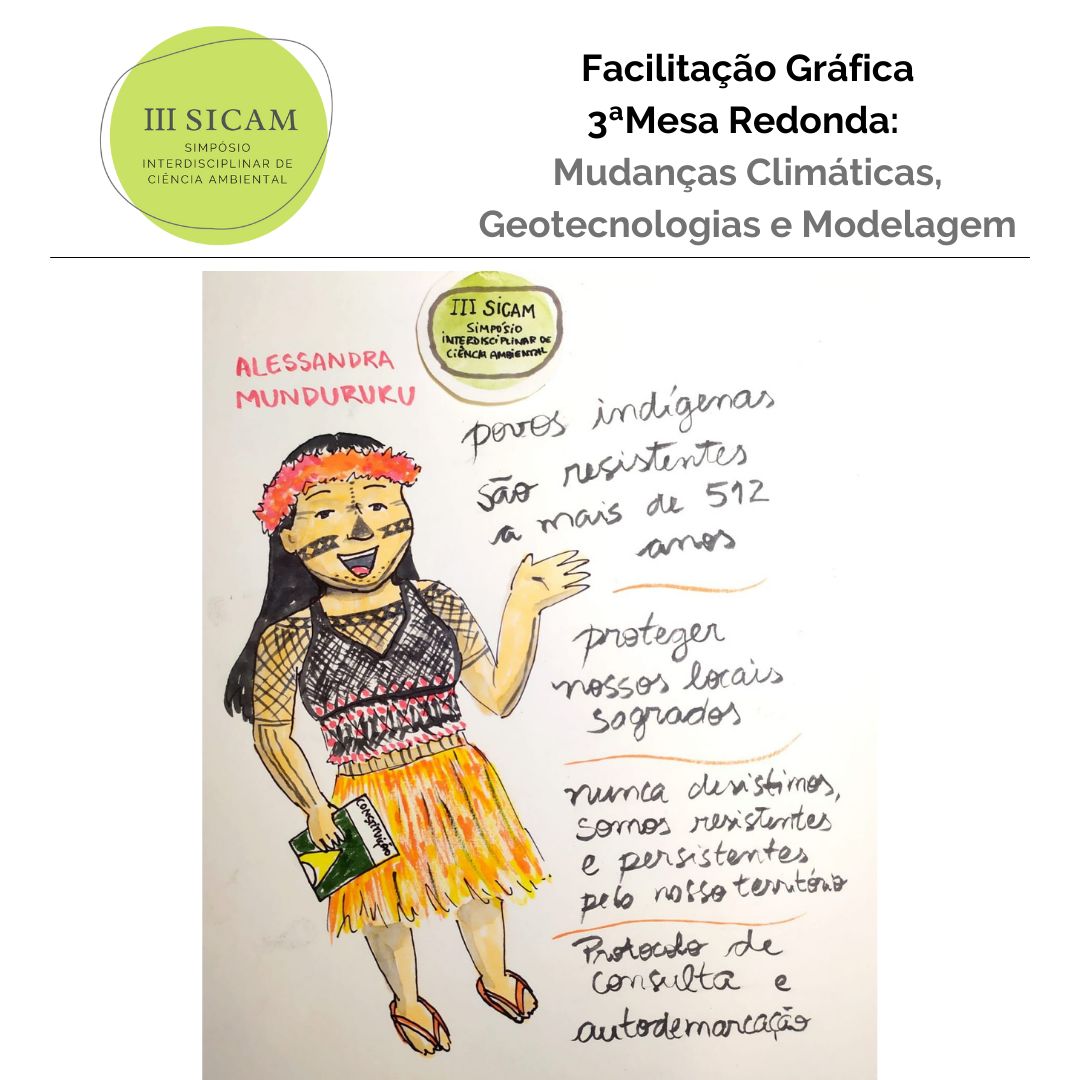 III SICAM
SIMPÓSIO
INTERDISCIPLINAR DE
CIÊNCIA AMBIENTAL
Facilitação Gráfica
3ªMesa Redonda:
Mudanças Climáticas,
Geotecnologias e Modelagem
III SICAM
SIMPÓSIO
INTERDISCIPLINAR DE
CIÊNCIA AMBIENTAL
ALESSANDRA
MUNDURUKU
povos indígenas
são resistentes
a mais de 512
anos
proteger
nossos locais
sagrados
nunca desistimos,
somos resistentes
e persistentes
pelo nosso território
Protocolo de
consulta e
autodemarcação
CONSTITUIÇÃO